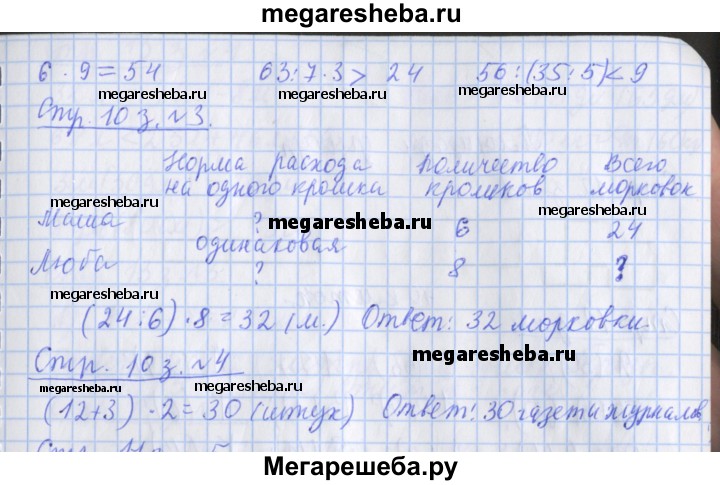 megaresheba.ru
6 · 9 = 54 63 : 7 · 3 > 24 56 : (35 : 5) < 9
megaresheba.ru megaresheba.ru megaresheba.ru
Стр. 10 з. №3.
Норма расхода Количество Всего
на одного кролика кроликов морковок
megaresheba.ru megaresheba.ru megaresheba.ru
Маша ? 6 24
одинаковая
Люба ? 8 ?
megaresheba.ru
(24 : 6) · 8 = 32 (м.) Ответ: 32 морковки.
Стр. 10 з. №4 megaresheba.ru
megaresheba.ru megaresheba.ru
(12+3) · 2 = 30 (штук) Ответ: 30 газет и журналов
megaresheba.ru
Мегарешеба.ру